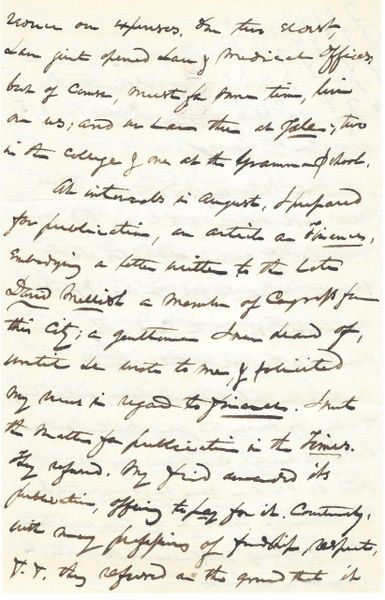 on expenses, Our two eldest,
have just opened Law & Medical Offices,
but of course, must for some time, live
on us; and we have three at Yale; two
in the College & one at the Grammar School.
At intervals in August, I prepared
for publication, an article on Finances,
Embodying a letter written to the late
David Mellish a member of Congress from
this City; a gentleman I never heard of,
until he wrote to me, & solicited
my views in regard to finances. I sent
the matter for publication in the Times.
They refused. My friend demanded its
publication, offering to pay for it. Courteously,
with many professions of friendship, respects,
&. &. they refused on the ground that it